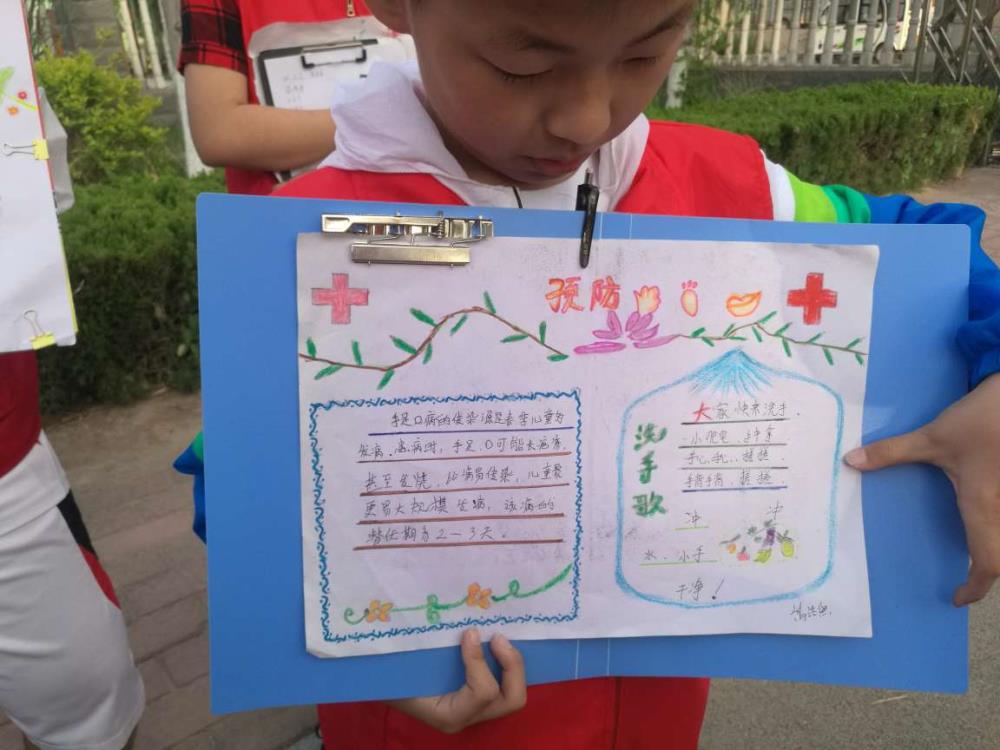 预防
手足口病的传染源是患者儿童为
发病.患病时,手足口可能长疱疹
甚至发烧,此病易传染,儿童最
更易大规模生病,该病的
潜伏期为2—3天。
洗手歌
大家快来洗手.
手心手心、搓搓.
手背手背、搓搓.
冲 冲
水、小手
干净!